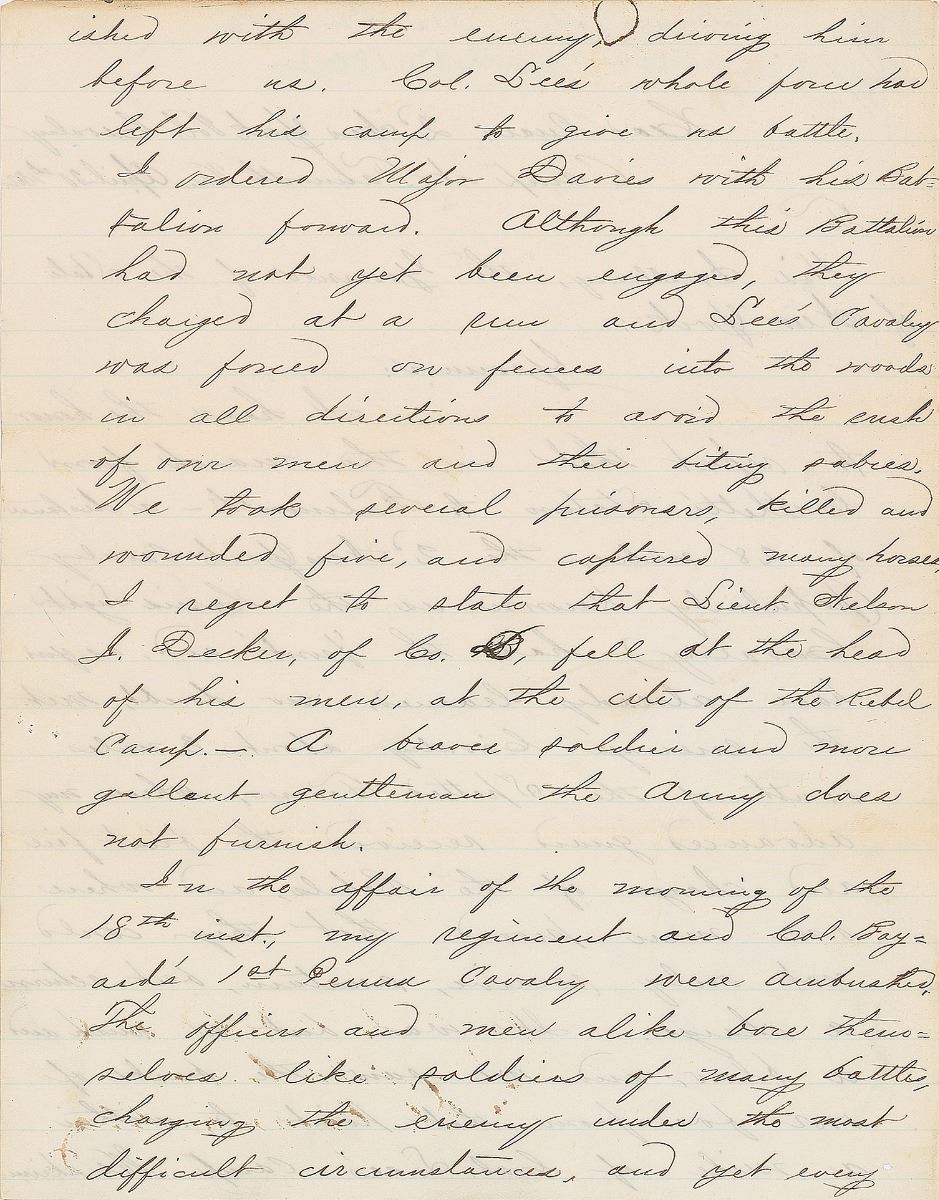 ished with the enemy, driving him
before us. Col. Lee's whole force had
left his camp to give us battle.
I ordered Major Davies with his Bat=
talion forward. Although this Battalion
had not yet been engaged, they
charged at a run and Lee's Cavalry
was forced on fences into the woods
in all directions to avoid the rush
of our men and their biting sabres.
We took several prisoners, killed and
wounded five, and captured many horses,
I regret to state that Lieut. Nelson
J. Decker, of Co. D, fell at the head
of his men, at the cite of the Rebel
Camp. — A braver soldier and more
gallant gentleman the Army does
not furnish.
In the affair of the morning of the
18th inst., my regiment and Col. Bay=
ard's 1st Penna Cavalry were ambushed.
The officers and men alike bore them=
selves like soldiers of many battles,
charging the enemy under the most
difficult circumstances, and yet every